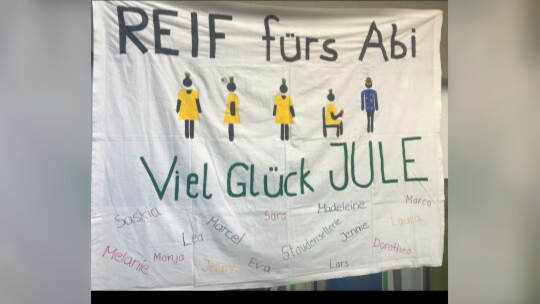 REIF fürs Abi
Viel Glück JULE
Saskia Lea Marcel Sara Madeleine Marco
Staudensellerie Jennie Laura
Melanie Monja Jenny Eva Lars Dorothea